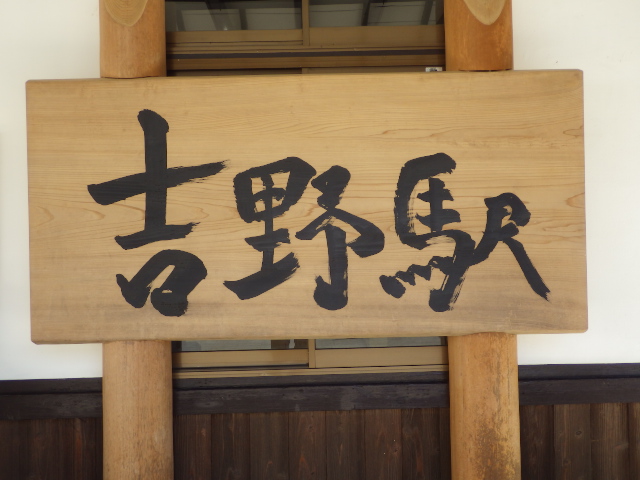 吉野駅